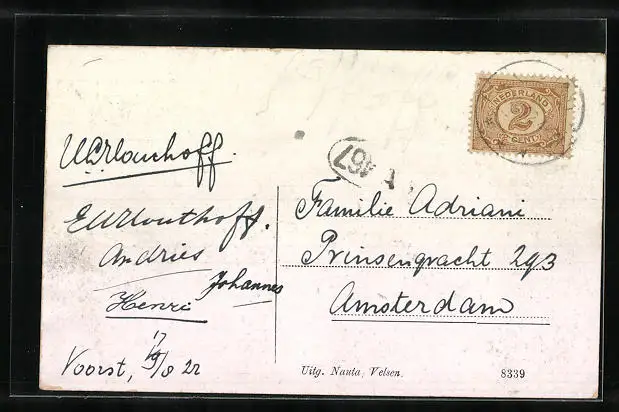 NEDERLAND
2
CENT
467
Andries
Johannes
Henri
Voorst, 17/8 22
Familie Adriani
Prinsengracht 293
Amsterdam
Uitg. Nauta, Velsen.
8339